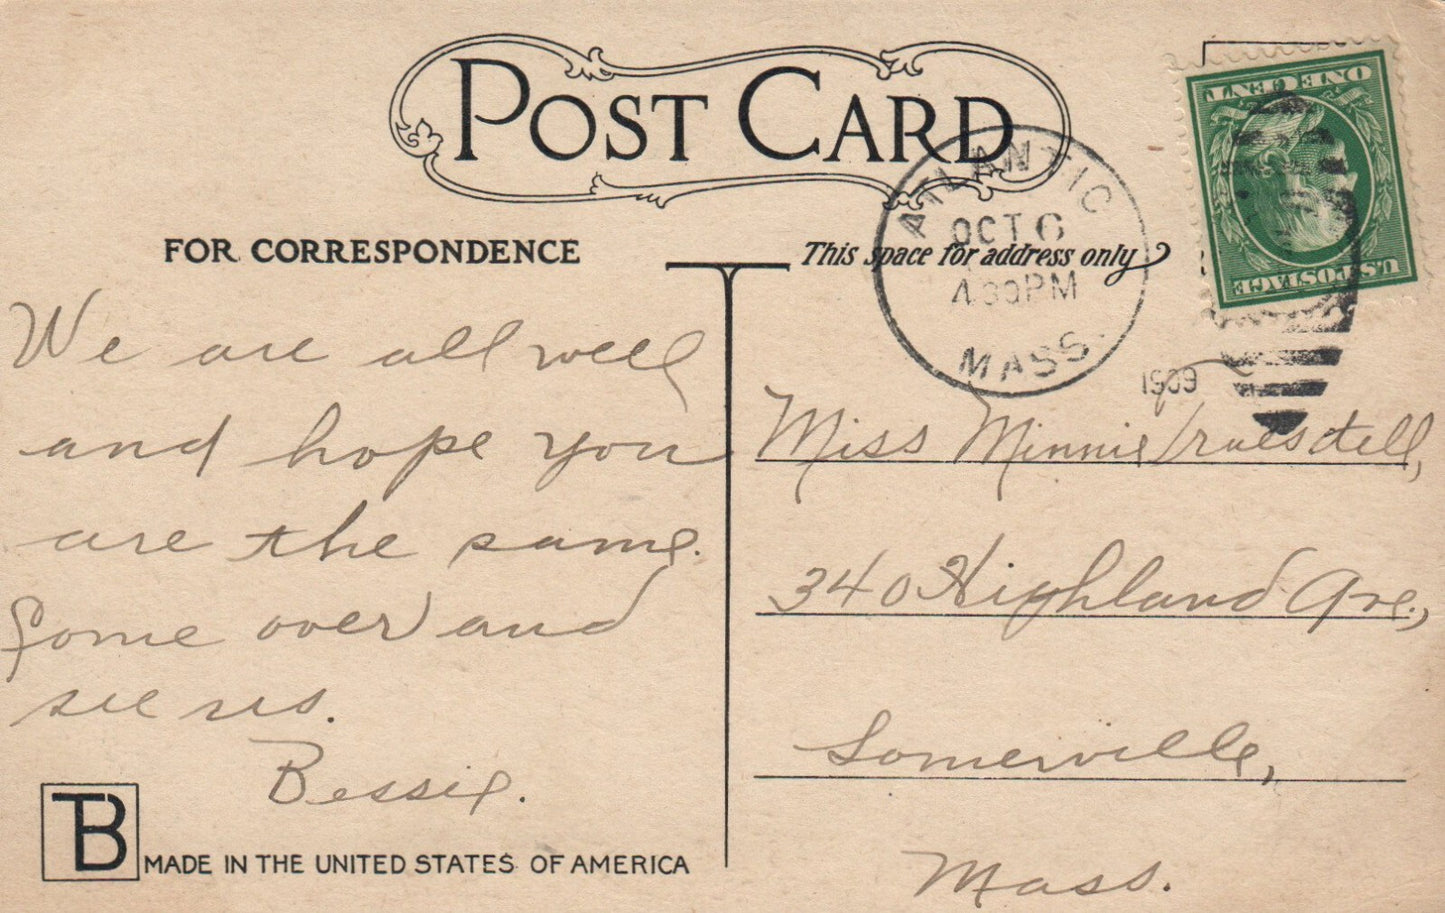 POST CARD
FOR CORRESPONDENCE
This space for address only
ATLANTIC
OCT 6
4 30 PM
MASS.
1909
ONE CENT
U.S. POSTAGE
We are all well
and hope you
are the same.
Come over and
see us.
Bessie.
Miss Minnie Truesdell,
340 Highland Ave.,
Somerville,
Mass.
TB
MADE IN THE UNITED STATES OF AMERICA